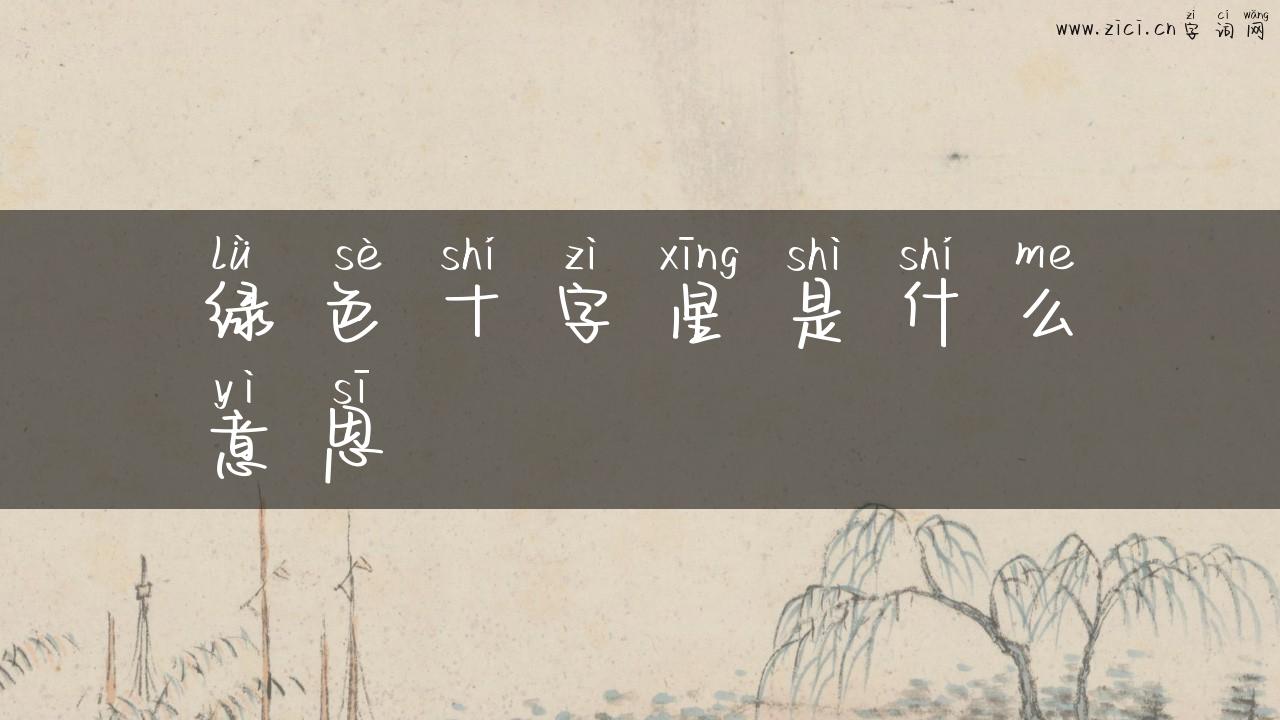 zì cí wǎng
www.zici.cn 字词网
lǜ sè shí zì xīng shì shí me
绿色十字星是什么
yì sī
意思